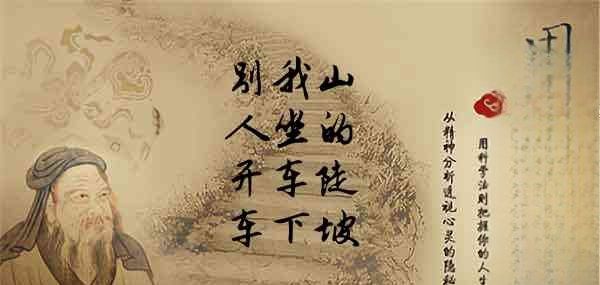 别人开车
我坐车下
山的陡坡
从精神分析透视心灵的隐秘
用科学法则把握你的人生